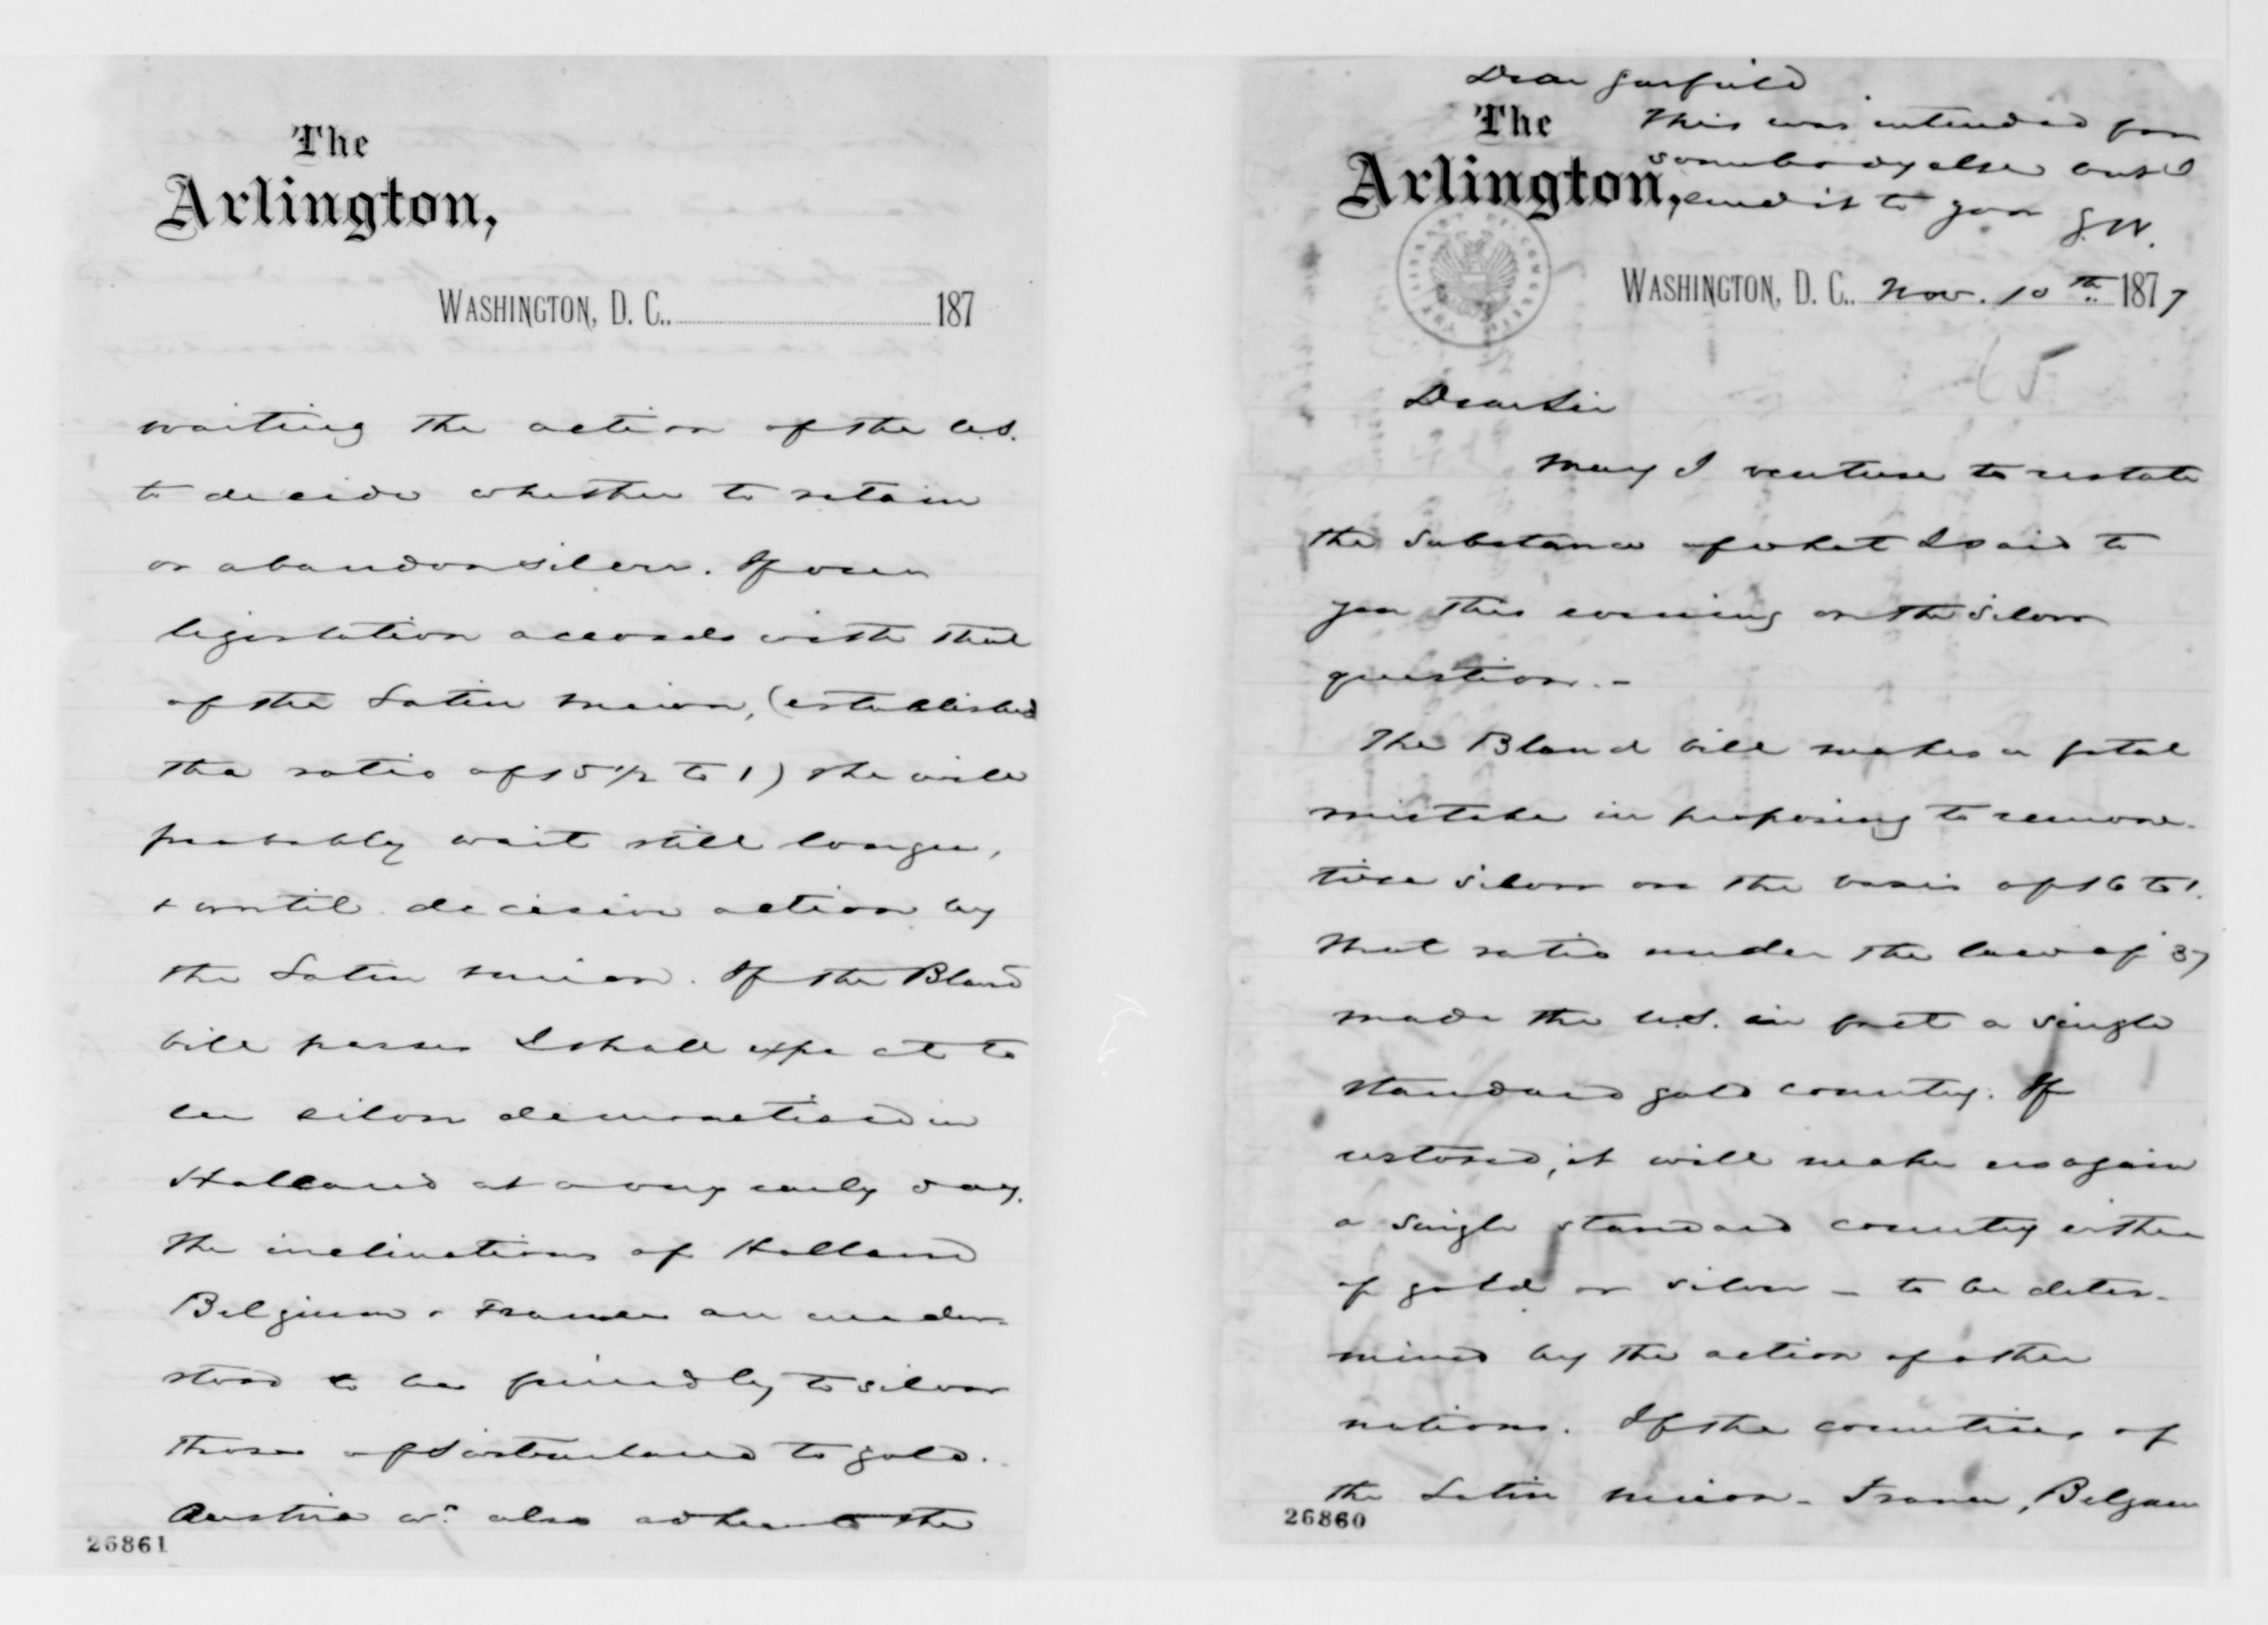 The
Arlington,
WASHINGTON, D. C., 187
waiting the action of the U.S.
to decide whether to retain
or abandon silver. If our
legislation accords with that
of the Latin Union, (established
the ratio of 15 1/2 to 1) she will
probably wait still longer,
& until decisive action by
the Latin Union. If the Bland
bill passes I shall expect to
see silver demonetised in
Holland at a very early day.
The inclinations of Holland
Belgium & France are under-
stood to be friendly to silver
those of Switzerland to gold.
Austria wd. also adhere to the
26861
Dear Garfield
This was intended for
somebody else but I
send it to you G.W.
The
Arlington,
WASHINGTON, D. C., Nov. 10th 1877
65
Dear Sir
May I venture to restate
the substance of what I said to
you this evening on the silver
question.-
The Bland bill makes a fatal
mistake in proposing to remone-
tise silver on the basis of 16 to 1.
That ratio under the law of 37
made the U.S. in fact a single
standard gold country. If
restored, it will make us again
a single standard country either
of gold or silver - to be deter-
mined by the action of other
nations. If the countries of
the Latin Union - France, Belgium
26860